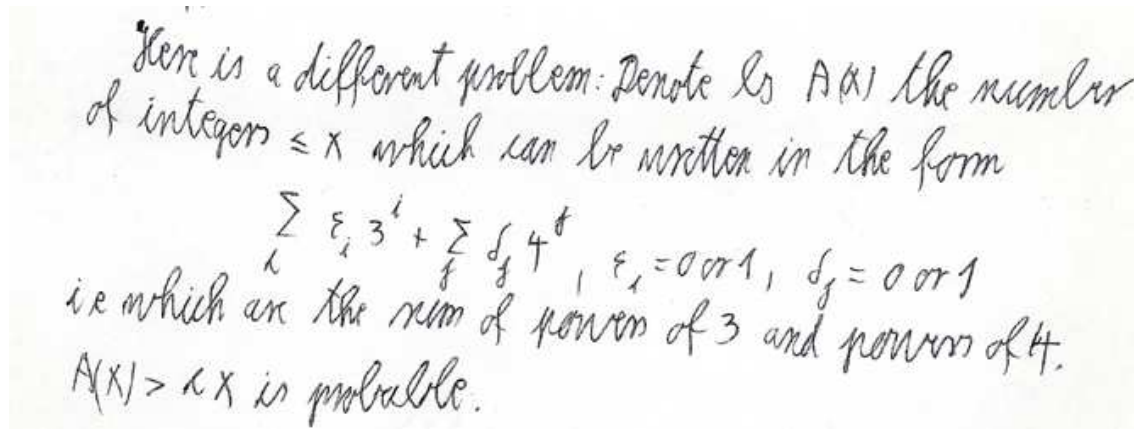 "Here is a different problem: Denote by A(x) the number
of integers ≤ x which can be written in the form
∑_i ε_i 3^i + ∑_j δ_j 4^j, ε_i = 0 or 1, δ_j = 0 or 1
i e which are the sum of powers of 3 and powers of 4.
A(x) > c x is probable.